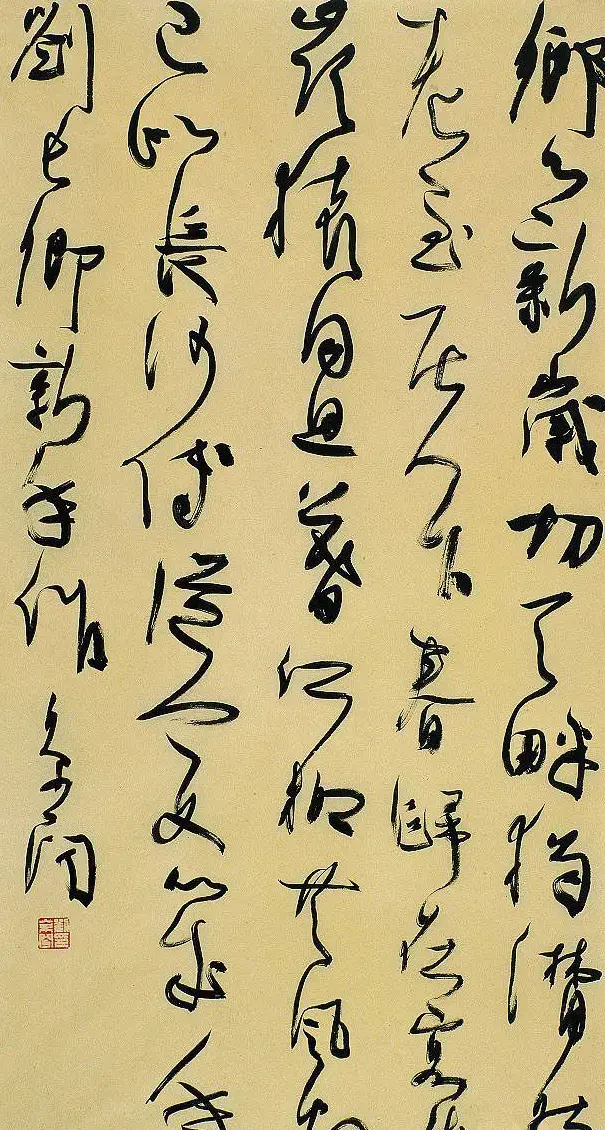 鄉心新歲切天畔獨潸然
老至居人下春歸在客先
嶺猿同旦暮江柳共風
已似長沙傅從今又幾年
劉長卿新年作